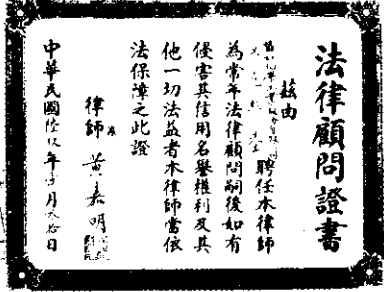 法律顧問證書
茲由
聘任本律師
為常年法律顧問嗣後如有
侵害其信用名譽權利及其
他一切法益者本律師當依
法保障之此證
律師 黃嘉明
中華民國 年 月 拾日